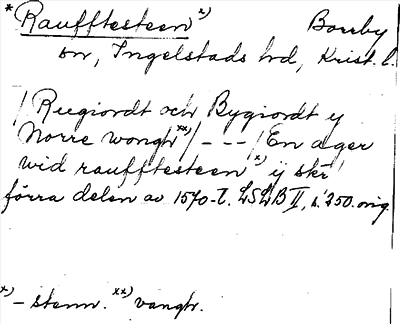 * Raufftesteen x) Borrby
sn, Ingelstads hd, Krist. l.
/Rugiordt och Bygiordt y
Norre wongh xx)/ - - - /En ager
wid raufftesteen x) ÿ skr/
förra delen av 1570-t. LSLB II, s. 250. orig.
x) – stenn. xx) vangh.